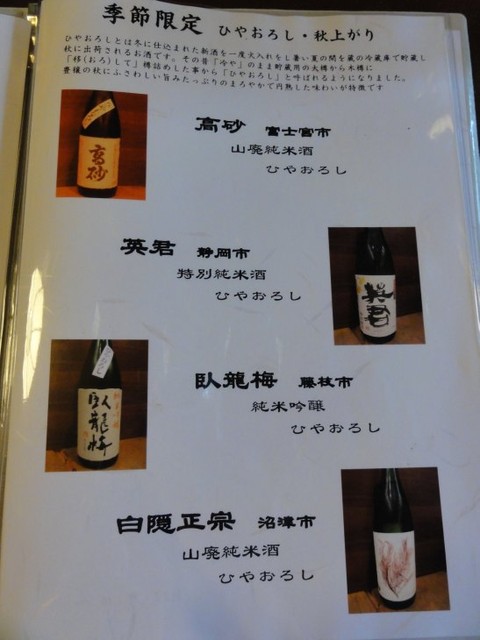 季節限定 ひやおろし・秋上がり
ひやおろしとは冬に仕込まれた新酒を一度火入れをし暑い夏の間を蔵の冷蔵庫で貯蔵し
秋に出荷されるお酒です。その昔「冷や」のまま貯蔵用の大樽から木樽に
「移(おろ)して」樽詰めした事から「ひやおろし」と呼ばれるようになりました。
豊穣の秋にふさわしい旨みたっぷりのまろやかで円熟した味わいが特徴です
高砂 富士宮市
山廃純米酒
ひやおろし
高砂
英君 静岡市
特別純米酒
ひやおろし
英君
臥龍梅 藤枝市
純米吟醸
ひやおろし
臥龍梅
白隠正宗 沼津市
山廃純米酒
ひやおろし